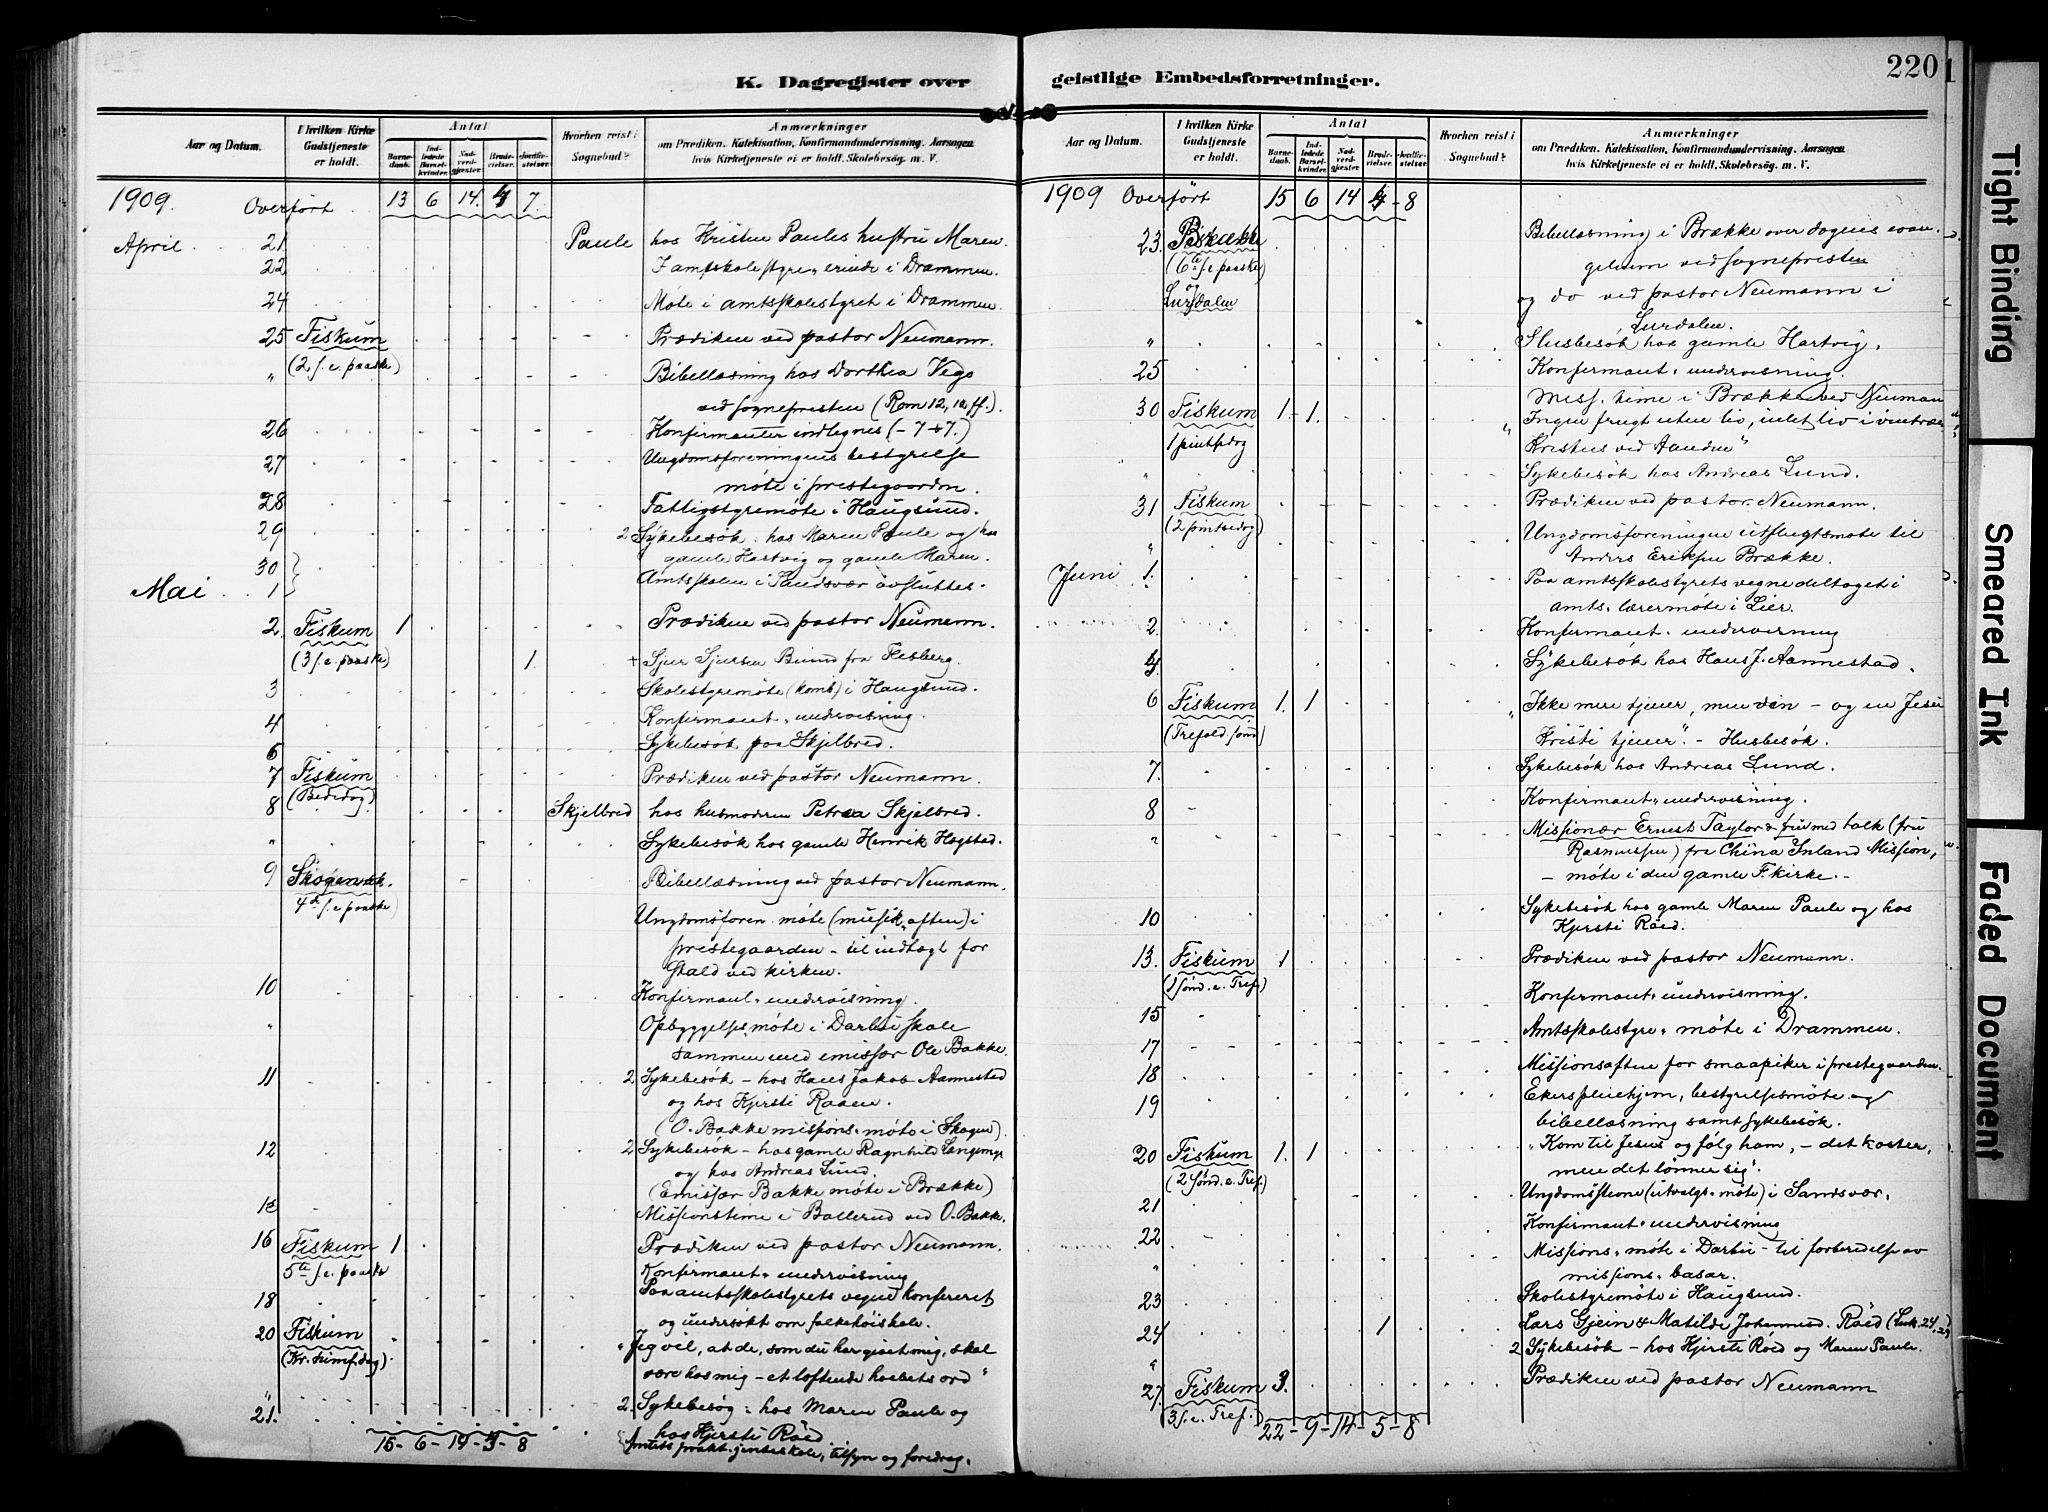 220
K. Dagregister over
Aar og Datum.
I hvilken Kirke Gudstjeneste er holdt.
Antal
Barnedaab.
Indledede Barselkvinder.
Nadverdgjester.
Brudevielser.
Jordfæstelser.
Hvorhen reist i Sognebud?
Anmærkninger
om Prædiken, Katekisation, Konfirmandundervisning, Aarsagen
hvis Kirketjeneste ei er holdt, Skolebesøg m. V.
1909. Overført 13 6 14. 4 7.
April 21 Paule hos Kristen Paules hustru Maren.
22 I amtskolestyre-erinde i Drammen.
24 Møte i amtsskolestyret i Drammen
25 Fiskum Prædiken ved pastor Neumann.
(2 s. e. paaske)
" Bibellæsning hos Dorthea Vego
ved sognepresten (Rom 12, 10 ff.).
26 Konfirmanter indtegnes (- 7 + 7.)
27 Ungdomsforeningens bestyrelse
møte i prestegaarden.
28 Fattigstyremøte i Haugsund.
29 2 Sykebesøk: hos Maren Paule og hos
gamle Hartvig og gamle Maren.
30
Mai 1 Amtsskolen i Sandsvær avsluttes.
2. Fiskum 1 Prædiken ved pastor Neumann.
(3 s. e. paaske) 1. + Sjur Sjursen Bund fra Flesberg.
3 Skolestyremøte (komb) i Haugsund.
4 Konfirmant-undervisning.
6 Sykebesøk paa Skjelbred.
7 Fiskum Prædiken ved pastor Neumann.
(Bededag)
8 Skjelbred hos husmoderen Petrea Skjelbred.
" Sykebesøk hos gamle Henrik Hogstad.
9 Skogen sk. Bibellæsning ved pastor Neumann.
4de s. e. paaske)
Ungdomsforen. møte (musik-aften) i
prestegaarden - til indtægt for
Stald ved kirken.
10 Konfirmant-undervisning.
" Opbyggelsesmøte i Darbu skole
sammen med emissær Ole Bakke.
11 2 Sykebesøk - hos Hans Jakob Aannestad
og hos Kjersti Raaen.
(O. Bakke missions-møte i Skogen).
12 2 Sykebesøk - hos gamle Ragnhild
og hos Andreas Lund.
(Emissær Bakke møte i Brække)
Missionstime i Ballerud ved O. Bakke.
16 Fiskum 1 Prædiken ved pastor Neumann.
5te s. e. paaske
Konfirmant-undervisning
18 Paa amtsskolestyrets vegne konfereret
og undersøkt om folkehøiskole.
20 Fiskum "Jeg vil, at de, som du har givet mig, skal
(Kr. himf.dag) være hos mig - et løftende haabets ord"
" 21. 2. Sykebesøg: hos Maren Paule og
hos Kjersti Röed
Amtets prakt. jenteskole, tilsyn og foredrag.
15 - 6 - 14 - 3 - 8
geistlige Embedsforretninger.
Aar og Datum.
I hvilken Kirke Gudstjeneste er holdt.
Antal
Barnedaab.
Indledede Barselkvinder.
Nadverdgjester.
Brudevielser.
Jordfæstelser.
Hvorhen reist i Sognebud?
Anmærkninger
om Prædiken, Katekisation, Konfirmandundervisning, Aarsagen
hvis Kirketjeneste ei er holdt, Skolebesøg m. V.
1909 Overført 15 6 14 4 - 8
23. Bibellæsning i Brække over dagens evan-
(6te s. e. paaske) gelium ved sognepresten
og Lurdalen og do ved pastor Neumann i
Lurdalen.
" Husbesøk hos gamle Hartvig.
25 Konfirmant-undervisning.
Miss. time i Brække ved Neuman
30 Fiskum 1 - 1. "Ingen frugt uten liv, intet liv i vintræ
1 pintsedag Kristus ved Aanden"
" Sykebesøk hos Andreas Lund.
31 Fiskum Prædiken ved pastor Neumann.
(2 pintsedag)
" Ungdomsforeningens utflugtsmøte til
Anders Eriksen Brække.
Juni 1. Paa amtsskolestyrets vegne deltaget i
amts-lærermøte i Lier.
2. Konfirmant-undervisning
4. Sykebesøk hos Hans J. Aannestad.
6 Fiskum 1. 1 "Ikke mere tjener, men ven - og en Jesu
(Trefold. sønd) Kristi tjener". - Husbesøk.
7. Sykebesøk hos Andreas Lund.
8 Konfirmant-undervisning.
" Missionær Ernest Taylor & frue med tolk (fru
Rasmussen) fra China Inland Mission,
- møte i den gamle F. kirke. -
10 Sykebesøk hos gamle Maren Paule og hos
Kjersti Röed.
13. Fiskum 1 Prædiken ved pastor Neumann.
(1 sønd. e. Tref.)
15 Konfirmant-undervisning.
17 Amtsskolestyre-møte i Drammen.
18 Missionsaften for smaapiker i prestegaarden.
19 Ekers pleiehjem, bestyrelsesmøte og
bibellæsning samt sykebesøk.
20 Fiskum 1. 1 "Kom til Jesus og følg ham, - det koster,
(2 sønd. e. Tref.) men det lønner sig".
21 Ungdomsstevne (utvalgs-møte) i Sandsvær.
22 Konfirmant-undervisning
" Missions-møte i Darbu - til forberedelse av
missions-basar.
23 Skolestyremøte i Haugsund.
24 1 Lars Gjein & Matilde Johannesd. Röed (Luk. 24, 29)
" 2 Sykebesøk - hos Kjersti Röed og Maren Paule.
27. Fiskum 3. Prædiken ved pastor Neumann
3 s. e. Tref.
22 - 9 - 14 - 5 - 8
Tight Binding
Smeared Ink
Faded Document